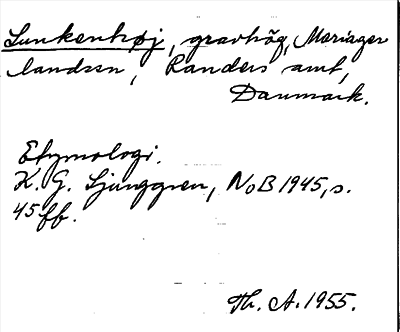 Lunkenhøj, gravhög, Mariager
landssn, Randers amt,
Danmark.
Etymologi.
K. G. Ljunggren, NoB 1945, s.
45 ff.
Th. A. 1955.